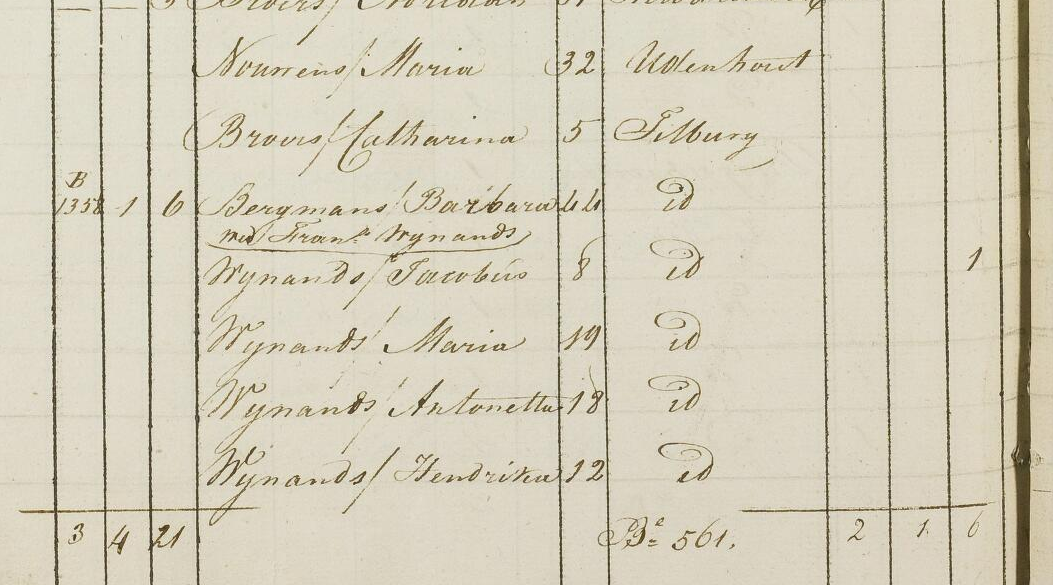 Nourrens/ Maria 32 Udenhout
Broers/ Catharina 5 Tilburg
B
1358 1 6 Bergmans/ Barbara 44 id
wed Frans Wynands
Wynands/ Jacobus 8 id 1
Wynands/ Maria 19 id
Wynands/ Antonetta 18 id
Wynands/ Hendrika 12 id
3 4 21 Be 561. 2 1 6